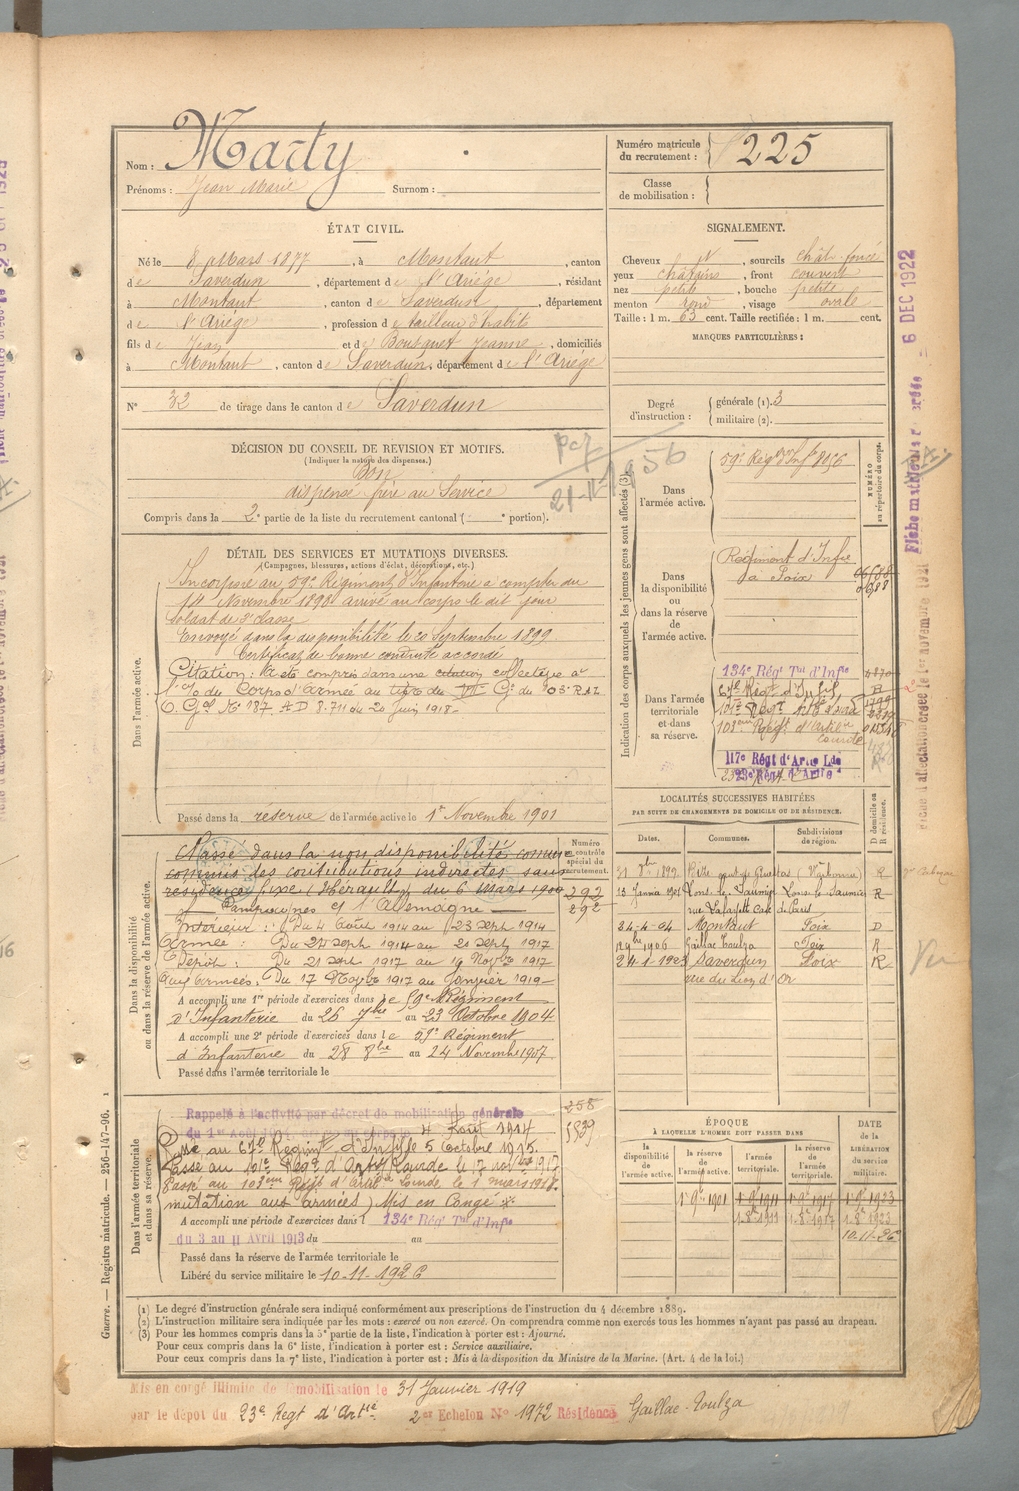 Nom : Marty
Prénoms : Jean Marie Surnom :
Numéro matricule du recrutement : 225
Classe de mobilisation :
ÉTAT CIVIL.
Né le 8 Mars 1877, à Montaut, canton
de Saverdun, département de l'Ariége, résidant
à Montaut, canton de Saverdun, département
de l'Ariége, profession de tailleur d'habits
fils de Jean et de Bousquet Jeanne, domiciliés
à Montaut, canton de Saverdun, département de l'Ariége
N° 32 de tirage dans le canton de Saverdun
SIGNALEMENT.
Cheveux N, sourcils chât. foncé
yeux châtains, front couvert
nez petit, bouche petite
menton rond, visage ovale
Taille : 1 m. 63 cent. Taille rectifiée : 1 m. cent.
MARQUES PARTICULIÈRES :
Degré d'instruction : générale (1). 3
militaire (2).
DÉCISION DU CONSEIL DE REVISION ET MOTIFS.
(Indiquer la nature des dispenses.)
Bon
dispensé frère au Service
Compris dans la 2e partie de la liste du recrutement cantonal ( e portion).
21-11-1956
DÉTAIL DES SERVICES ET MUTATIONS DIVERSES.
(Campagnes, blessures, actions d'éclat, décorations, etc.)
Dans l'armée active.
Incorporé au 59e Régiment d'Infanterie à compter du
14 Novembre 1898 arrivé au corps le dit jour
Soldat de 2e classe
Envoyé dans la disponibilité le 20 Septembre 1899
Certificat de bonne conduite accordé
Citation : A été compris dans une citation collective à
l'O. du Corps d'Armée au titre du VIe Gr. du 103e R.A.L.
O. Gal No 187. A.D 8.711 du 20 Juin 1918.
Passé dans la réserve de l'armée active le 1er Novembre 1901
Indication des corps auxquels les jeunes gens sont affectés (3)
NUMÉRO au répertoire du corps.
Dans l'armée active.
59e Régt d'Inf. 8056
Dans la disponibilité ou dans la réserve de l'armée active.
Régiment d'Infie
à Foix
Dans l'armée territoriale et dans sa réserve.
134e Régt Tal d'Infie
67e Régt d'Infie
101e Régt
103eme Régt d'Artie Lourde
117e Régt d'Artie Lde
23e Régt d'Artie
Dans la disponibilité ou dans la réserve de l'armée active.
Numéro au contrôle spécial du recrutement.
292
292
Classé dans la non disponibilité comme
commis des contributions indirectes sans
résidence fixe (Hérault) du 6 mars 1900
Campagnes et l'Allemagne
Intérieur : Du 4 Août 1914 au 23 sept 1914
Armée : Du 24 sept 1914 au 20 sept 1917
Dépôt : Du 21 sept 1917 au 16 Novbre 1917
Aux Armées : Du 17 Novbre 1917 au Janvier 1919
A accompli une 1re période d'exercices dans le 59e Régiment
d'Infanterie du 26 7bre au 23 Octobre 1904
A accompli une 2e période d'exercices dans le 59e Régiment
d'Infanterie du 28 8bre au 24 Novembre 1907
Passé dans l'armée territoriale le
LOCALITÉS SUCCESSIVES HABITÉES
PAR SUITE DE CHANGEMENTS DE DOMICILE OU DE RÉSIDENCE.
Dates. Communes. Subdivisions de région. D domicile ou R résidence.
(Narbonne) R
13 Janvier 1901 Lons-le-Saunier Lons-le-Saunier R
rue Lafayette Café de Paris
24-4-04 Montaut Foix D
1906 Gaillac Toulza Foix R
24-1-1923 Saverdun Foix R
rue du Lion d'Or
Dans l'armée territoriale et dans sa réserve.
258
5839
Rappelé à l'activité par décret de mobilisation générale
du 1er Août 1914 4 Août 1914
Passé au 67e Régiment d'Infie le 5 Octobre 1915.
Passé au 101e Régt d'Artie Lourde le 17 novbre 1917
Passé au 103eme Régt d'Artie Lourde le 1er mars 1918.
(mutation aux armées) Mis en Congé
A accompli une période d'exercices dans l 134e Rég Tal d'Infie
du 3 au 11 Avril 1913 du au
Passé dans la réserve de l'armée territoriale le
Libéré du service militaire le 10-11-1926
ÉPOQUE
A LAQUELLE L'HOMME DOIT PASSER DANS
la disponibilité de l'armée active. la réserve de l'armée active. l'armée territoriale. la réserve de l'armée territoriale.
DATE de la LIBÉRATION du service militaire.
1er 9bre 1901 1er 9bre 1911 1er 9bre 1917 1er 9bre 1923
1-8-1911 1-8-1917 1-8-1923
10-11-26
(1) Le degré d'instruction générale sera indiqué conformément aux prescriptions de l'instruction du 4 décembre 1889.
(2) L'instruction militaire sera indiquée par les mots : exercé ou non exercé. On comprendra comme non exercés tous les hommes n'ayant pas passé au drapeau.
(3) Pour les hommes compris dans la 5e partie de la liste, l'indication à porter est : Ajourné.
Pour ceux compris dans la 6e liste, l'indication à porter est : Service auxiliaire.
Pour ceux compris dans la 7e liste, l'indication à porter est : Mis à la disposition du Ministre de la Marine. (Art. 4 de la loi.)
Mis en congé illimité de démobilisation le 31 Janvier 1919
par le dépôt du 23e Régt d'Artie 2er Echelon No 1972 Résidence Gaillac-Toulza
Guerre. — Registre matricule. — 256-147-96. 1
Fiche matricule créée le 6 DEC 1922
Fiche d'affectation créée le 1er novembre 1921